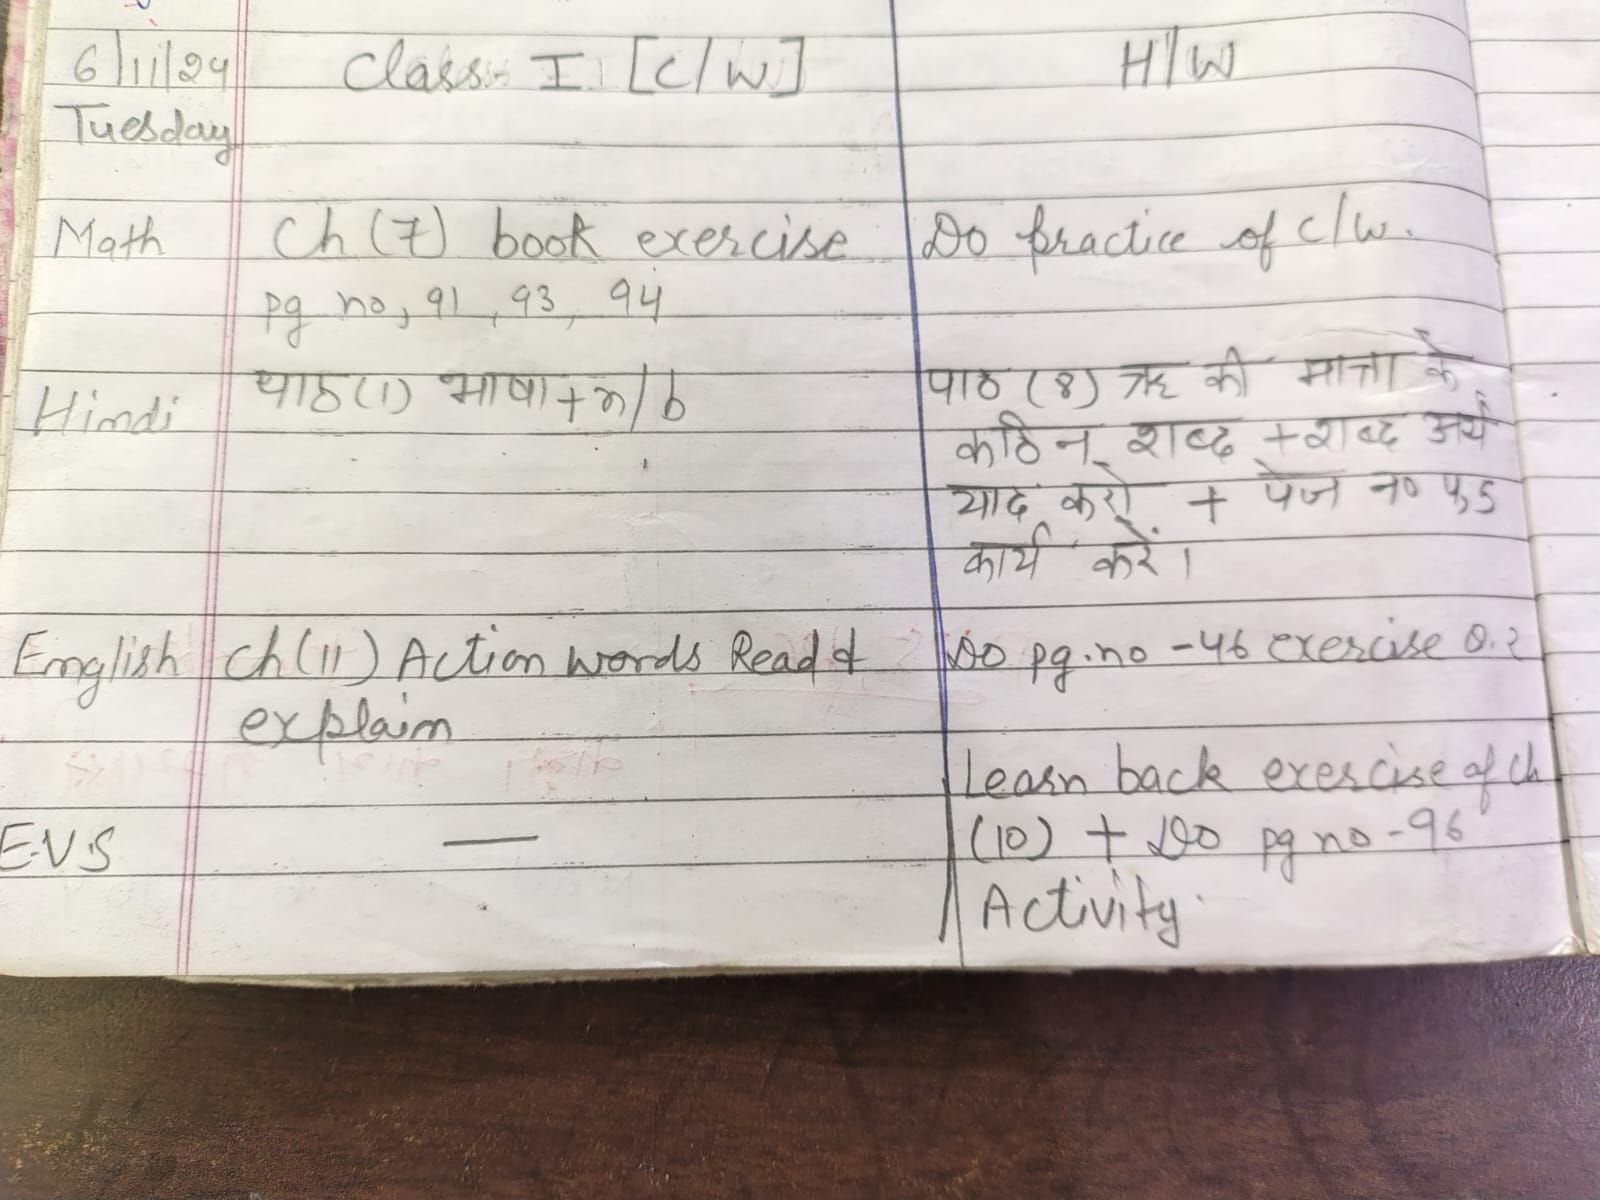 6/11/24 Class- I [C/W] H/W
Tuesday
Math Ch (7) book exercise Do practice of c/w.
pg no, 91, 93, 94
Hindi पाठ (1) भाषा + n/b पाठ (8) ऋ की मात्रा के
कठिन शब्द + शब्द अर्थ
याद करो + पेज न०
कार्य करें।
English Ch (11) Action words Read & Do pg.no -46 exercise Q.2
explain
Learn back exercise of ch
E.V.S — (10) + Do pg no -96
Activity.